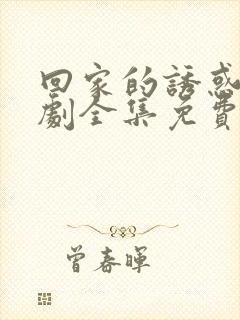 回家的誘惑
劇全集免費
曾春暉